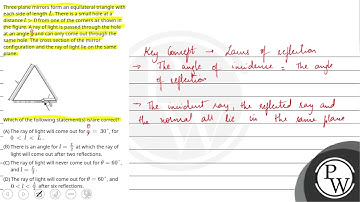 Three plane mirrors form an equilateral triangle with
each side of length L. There is a small hole at a
distance l > 0 from one of the corners as shown in
the figure. A ray of light is passed through the hole
at an angle θ and can only come out through the
same hole. The cross section of the mirror
configuration and the ray of light lie on the same
plane.
Which of the following statement(s) is/are correct?
(A) The ray of light will come out for θ = 30°, for
0 < l < L.
(B) There is an angle for l = L/2 at which the ray of
light will come out after two reflections.
(C) The ray of light will never come out for θ = 60°,
and l = L/3.
(D) The ray of light will come out for θ = 60°, and
0 < l < L/2 after six reflections.
Key Concept → Laws of reflection
→ The angle of incidence = The angle
of reflection
→ The incident ray, the reflected ray and
the normal all lie in the same plane
PW